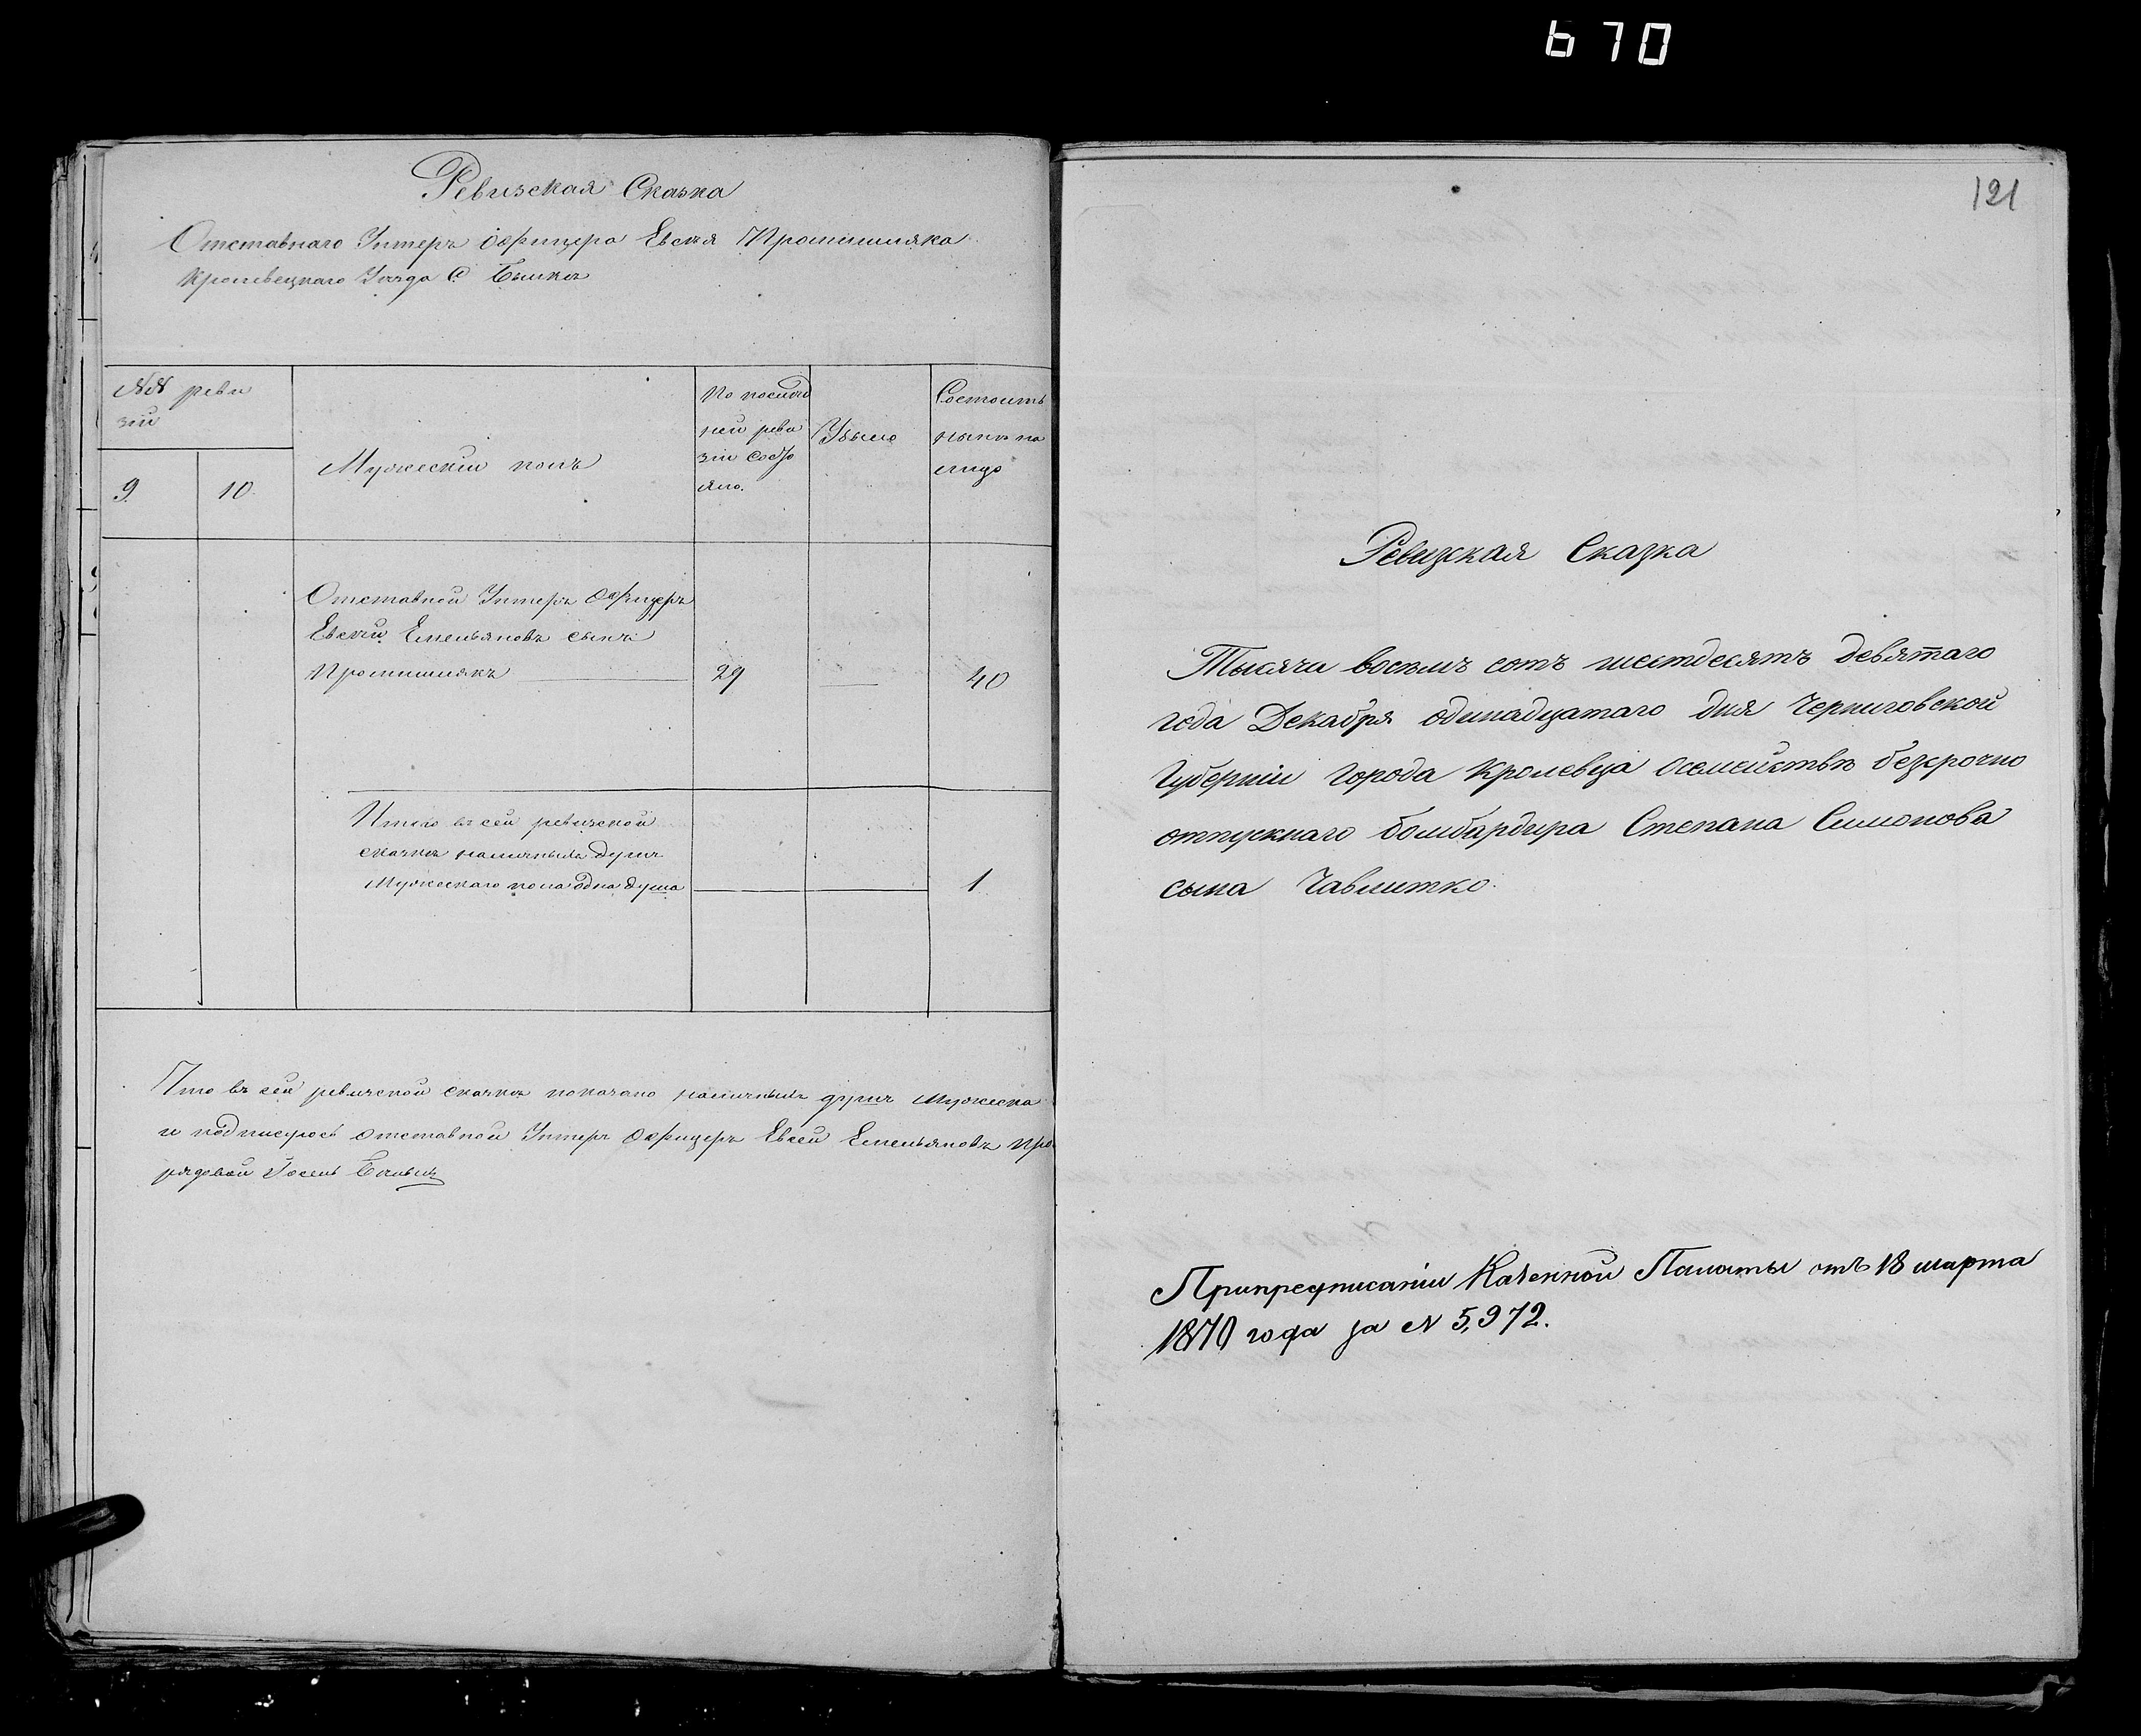 670
Ревизская Сказка
Отставнаго Унтеръ Офицера Евсея
Кролевецкаго Уезда С
№№ реви
зій
9
10.
Мужескій полъ
По послѣд
ней реви
зіи состо
яло.
Убыло
Состоитъ
нынѣ на
лицо
Отставной Унтеръ Офицеръ
Евсей Емельяновъ сынъ
29
40
Итого въ сей ревизской
сказкѣ наличныхъ душъ
Мужескаго пола одна душа
1
Что въ сей ревизской сказкѣ показано наличныхъ душъ Мужеска
и подписуюсь отставной Унтеръ Офицеръ Евсей Емельяновъ Про
рядовой
121
Ревизская Сказка
Тысяча восемъ сотъ шестдесятъ девятаго
года Декабря одинадцатаго дня Черниговской
Губерніи Города Кролевца осемействѣ безсрочно
отпускнаго бомбардира Степана Симонова
сына Чавлитко.
Припредписаніи Казенной Палаты отъ 18 марта
1870 года за № 5,972.